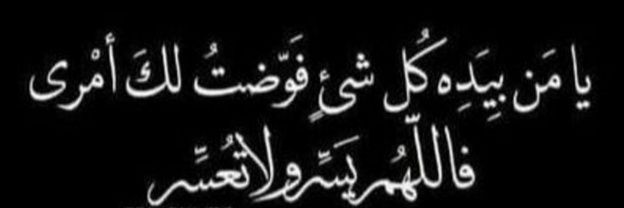 يا مَن بِيَدِه كُل شئٍ فَوّضتُ لكَ أمْرى
فاللّهُم يَسِّر ولا تُعسِّر